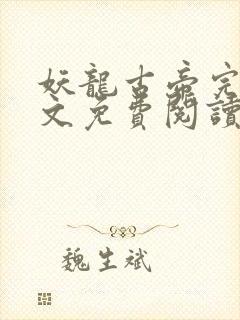 妖龍古帝完
文免費閱讀
魏生斌